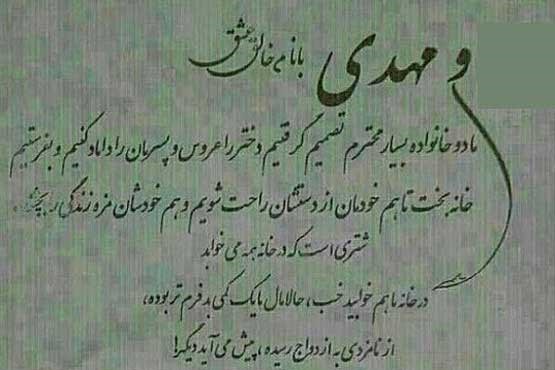 با نام خالق عشق
و مهدی
ما دو خانواده بسیار محترم تصمیم گرفتیم دختر را عروس و پسرمان را داماد کنیم و بفرستیم
خانه بخت تا هم خودمان از دستشان راحت شویم و هم خودشان مزه زندگی را بچشند.
شتری است که در خانه همه می خوابد
در خانه ما هم خوابید خب، حالا مال ما یک کمی بد فرم تر بوده،
از نامزدی به ازدواج رسیده، پیش می آید دیگر!